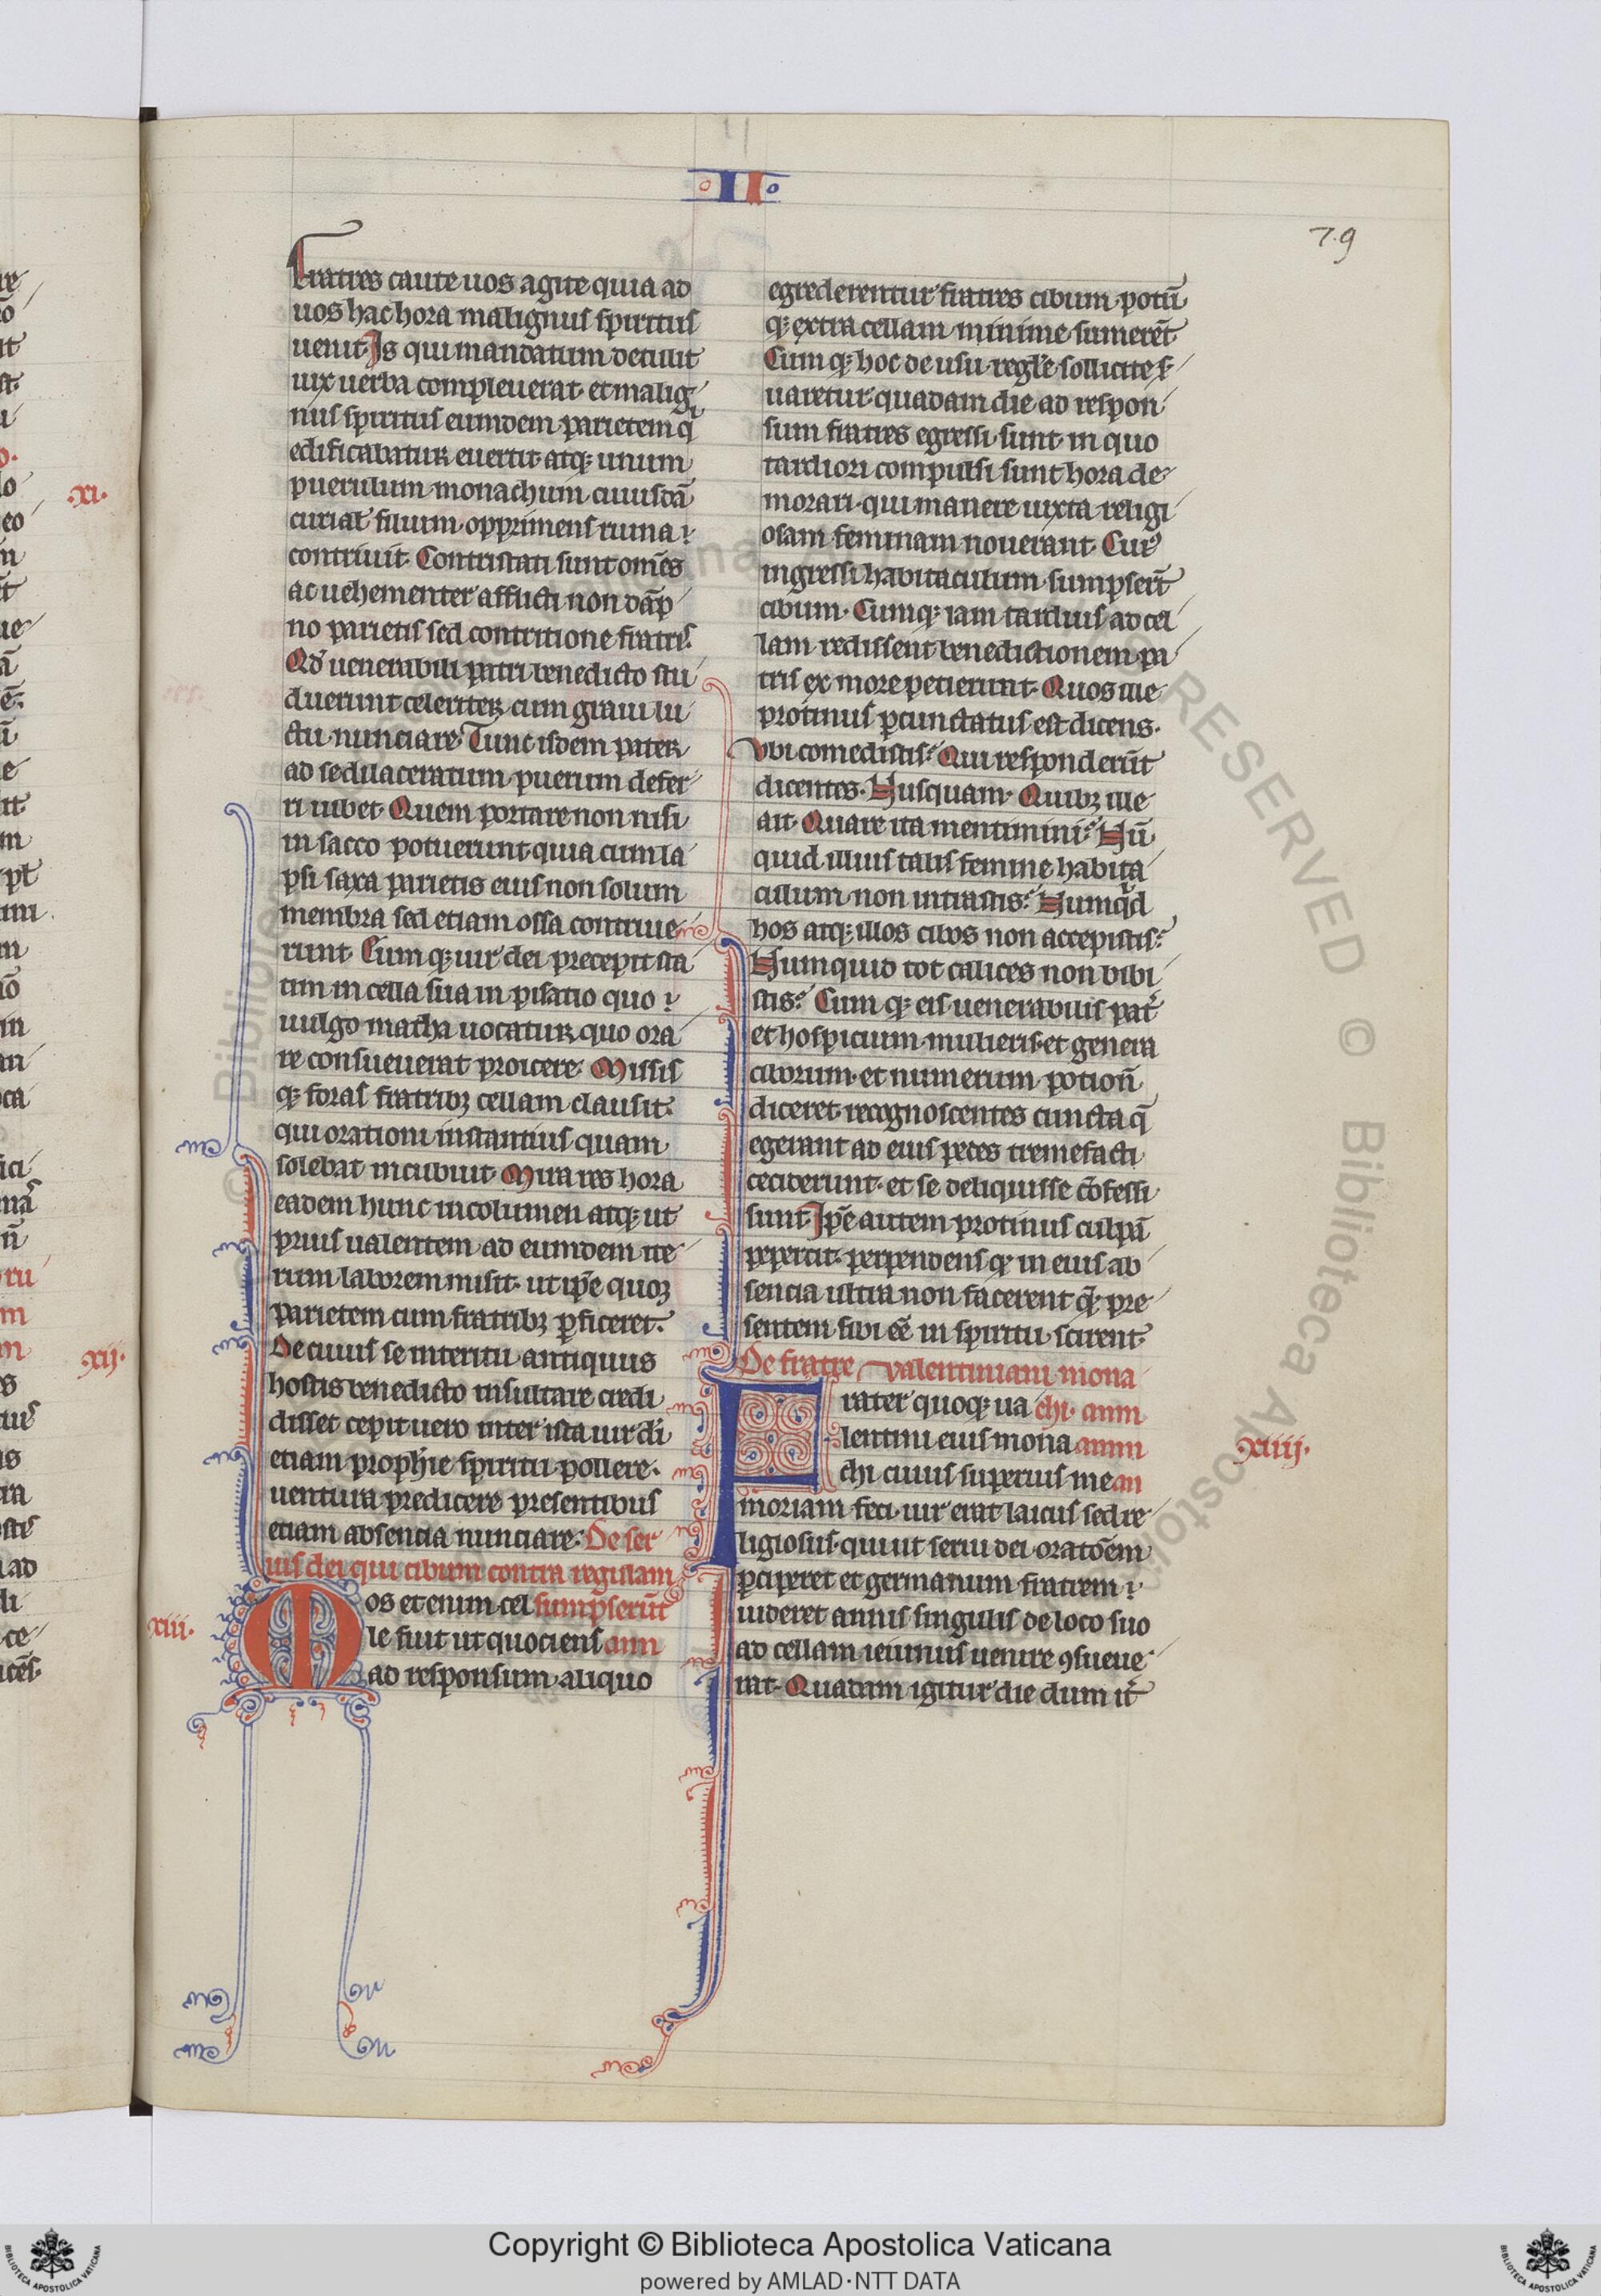 II
79
Fratres caute uos agite quia ad
uos hac hora malignus spiritus
uenit. Is qui mandatum detulit
uix uerba compleuerat. et malig
nus spiritus eumdem parietem q̇
edificabatur euertit. atq; unum
puerulum monachum cuiusdā
curial̄ filium. opprimens ruina
contriuit. Contristati sunt om̄es
ac uehementer afflicti non dāp
no parietis sed contritione fratris.
Qd̓ uenerabili patri benedicto stu
duerunt celeriter cum graui lu
ctu nunciare. Tunc isdem pater
ad se dilaceratum puerum defer
ri iubet. Quem portare non nisi
in sacco potuerunt. quia cum la
psi saxa parietis eius non solum
membra sed etiam ossa contriue
runt. Cum q; uir dei precepit sta
tim in cella sua in psiatio quo
uulgo matha uocatur quo ora
re consueuerat proicere. Missis
q; foras fratribꝫ cellam clausit.
qui orationi instantius quam
solebat incubuit. Mira res hora
eadem hunc incolumen atq; ut
prius ualentem ad eumdem ite
rum laborem misit. ut ip̄e quoqꝫ
parietem cum fratribꝫ ꝑficeret.
xij.
De cuius se interitu antiquus
hostis benedicto insultare credi
disset cepit uero inter ista uir di̅
etiam proph̄ie spiritu pollere.
uentura predicere presentibus
etiam absencia nunciare. De ser
uis dei qui cibum contra regulam
xiii.
Mos etenim cel sumpserūt
le fuit ut quociens
ad responsum aliquo
egrederentur fratres cibum potū
q; extra cellam minime sumerēt
Cum q; hoc de usu regl̄e sollicite s̓
uaretur quadam die ad respon
sum fratres egressi sunt in quo
tardiori compulsi sunt hora de
morari. qui manere iuxta religi
osam feminam nouerant. Cui̓
ingressi habitaculum sumpserūt
cibum. Cumq; iam tardius ad cel
lam redissent benedictionem pa
tris ex more petierunt. Quos ille
protinus ꝑcunctatus est dicens.
Vbi comedistis? Qui responderūt
dicentes. Nusquam. Quibꝫ ille
ait. Quare ita mentimini? Nū
quid illius talis femine habita
culum non intrastis? Numqͥd
hos atq; illos cibos non accepistis?
Numquid tot calices non bibi
stis? Cum q; eis uenerabilis pat̓
et hospicium mulieris. et genera
ciborum. et numerum potionū
diceret recognoscentes cuncta q̄
egerant ad eius pedes tremefacti
ceciderunt. et se deliquisse cōfessi
sunt. Ip̄e autem protinus culpā
pepercit. perpendens qͩ in eius ab
sencia ultra non facerent q̄; pre
sentem sibi eē in spiritu scirent.
De fratre valentiniani mona
Frater quoq; ua chi.
lentini eius mona
xiiij.
chi cuius superius me
moriam feci. uir erat laicus sed re
ligiosus. qui ut serui dei oratōem
ꝑciperet et germanum fratrem
uideret annis singulis de loco suo
ad cellam ieiunus uenire ꝯsueue
rat. Quadam igitur die dum it̓